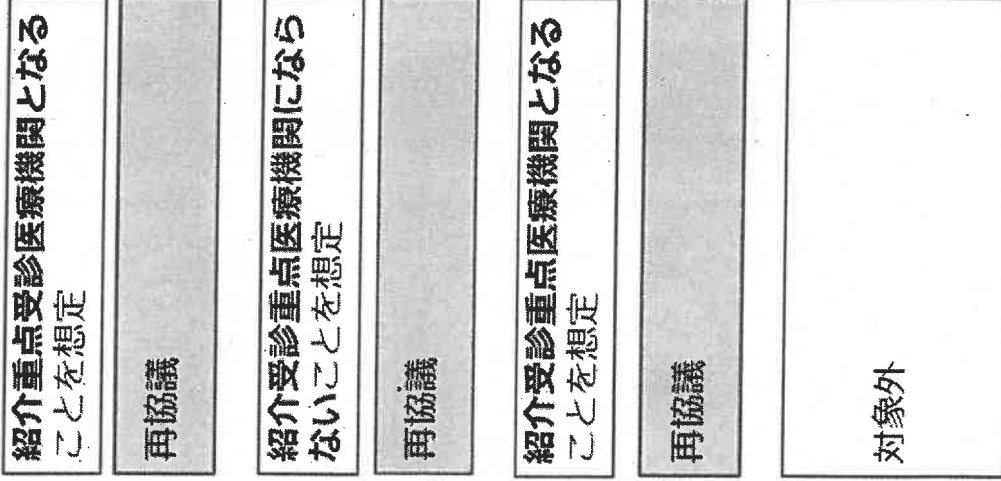 紹介重点受診医療機関となる
ことを想定
再協議
紹介受診重点医療機関になら
ないことを想定
再協議
紹介受診重点医療機関となる
ことを想定
再協議
対象外